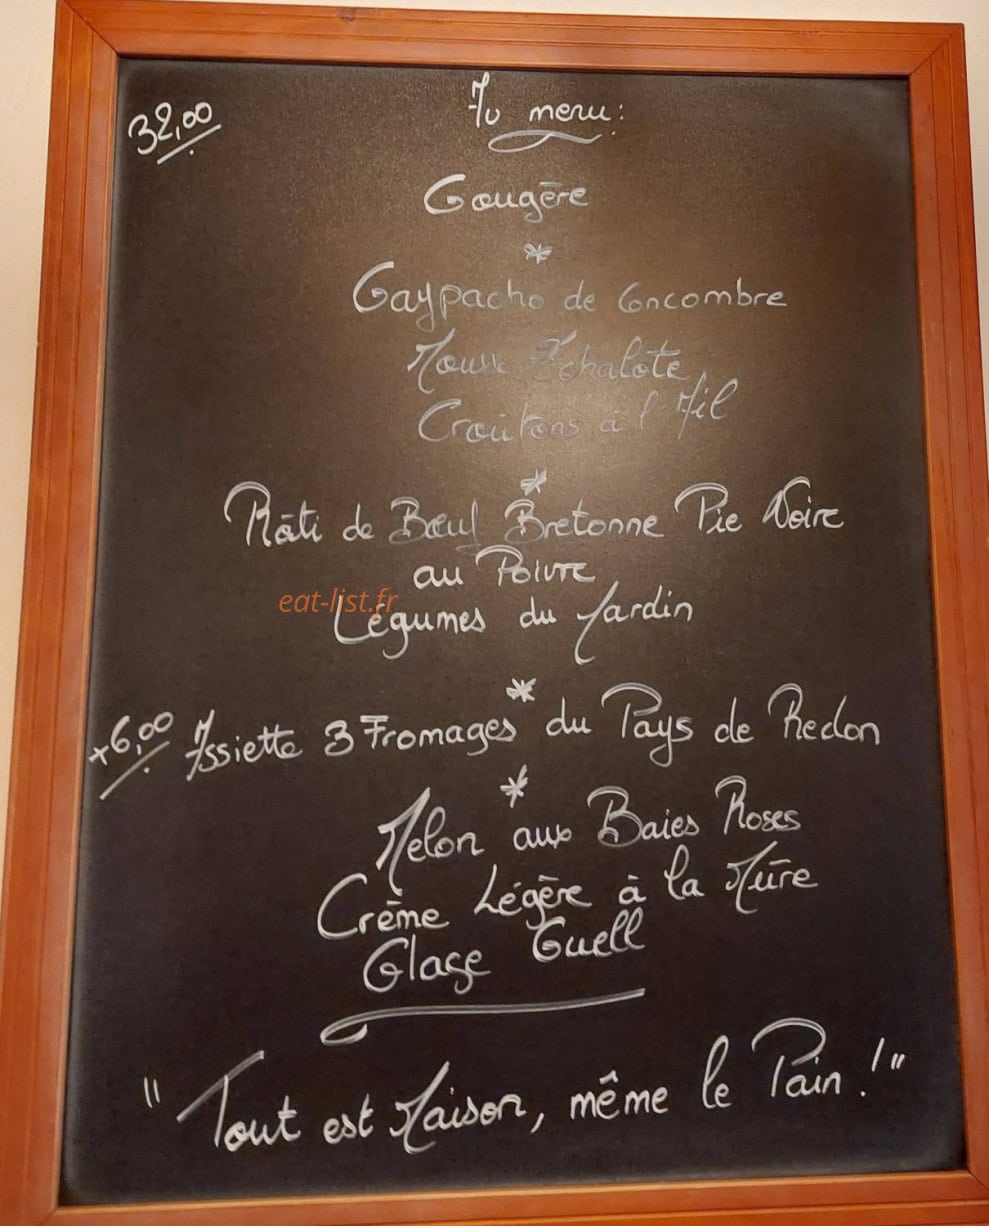 32,00
Au menu:
Gougère
*
Gaypacho de Concombre
Mousse Echalote
Croûtons à l'Ail
*
Rôti de Bœuf Bretonne Pie Noire
au Poivre
eat-list.fr
Légumes du Jardin
*
+6,00 Assiette 3 Fromages du Pays de Redon
*
Melon aux Baies Roses
Crème Légère à la Mûre
Glace Guell
"Tout est Maison, même le Pain !"